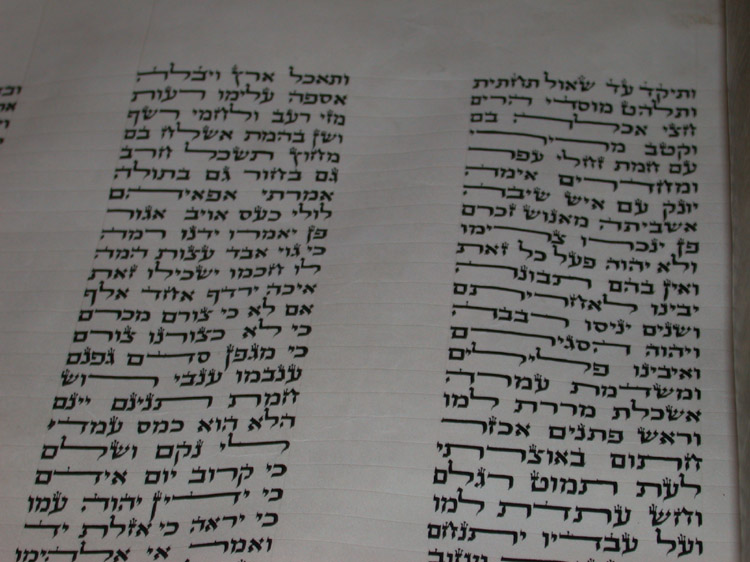 ותיקד עד שאול תחתית
ותאכל ארץ ויבלה
ותלהט מוסדי הרים
אספה עלימו רעות
חצי אכלה בם
מזי רעב ולחמי רשף
וקטב מרירי
ושן בהמת אשלח בם
עם חמת זחלי עפר
מחוץ תשכל חרב
ומחדרים אימה
גם בחור גם בתולה
יונק עם איש שיבה
אמרתי אפאיהם
אשביתה מאנוש זכרם
לולי כעס אויב אגור
פן ינכרו צרימו
פן יאמרו ידנו רמה
ולא יהוה פעל כל זאת
כי גוי אבד עצות המה
ואין בהם תבונה
לו חכמו ישכילו זאת
יבינו לאחריתם
איכה ירדף אחד אלף
ושנים יניסו רבבה
אם לא כי צורם מכרם
ויהוה הסגירם
כי לא כצורנו צורם
ואיבינו פלילים
כי מגפן סדם גפנם
ומשדמת עמרה
ענבמו ענבי רוש
אשכלת מררת למו
חמת תנינם יינם
וראש פתנים אכזר
הלא הוא כמס עמדי
חתום באוצרתי
לי נקם ושלם
לעת תמוט רגלם
כי קרוב יום אידם
וחש עתדת למו
כי ידין יהוה עמו
ועל עבדיו יתנחם
כי יראה כי אזלת יד
ואמר אי אלהימו